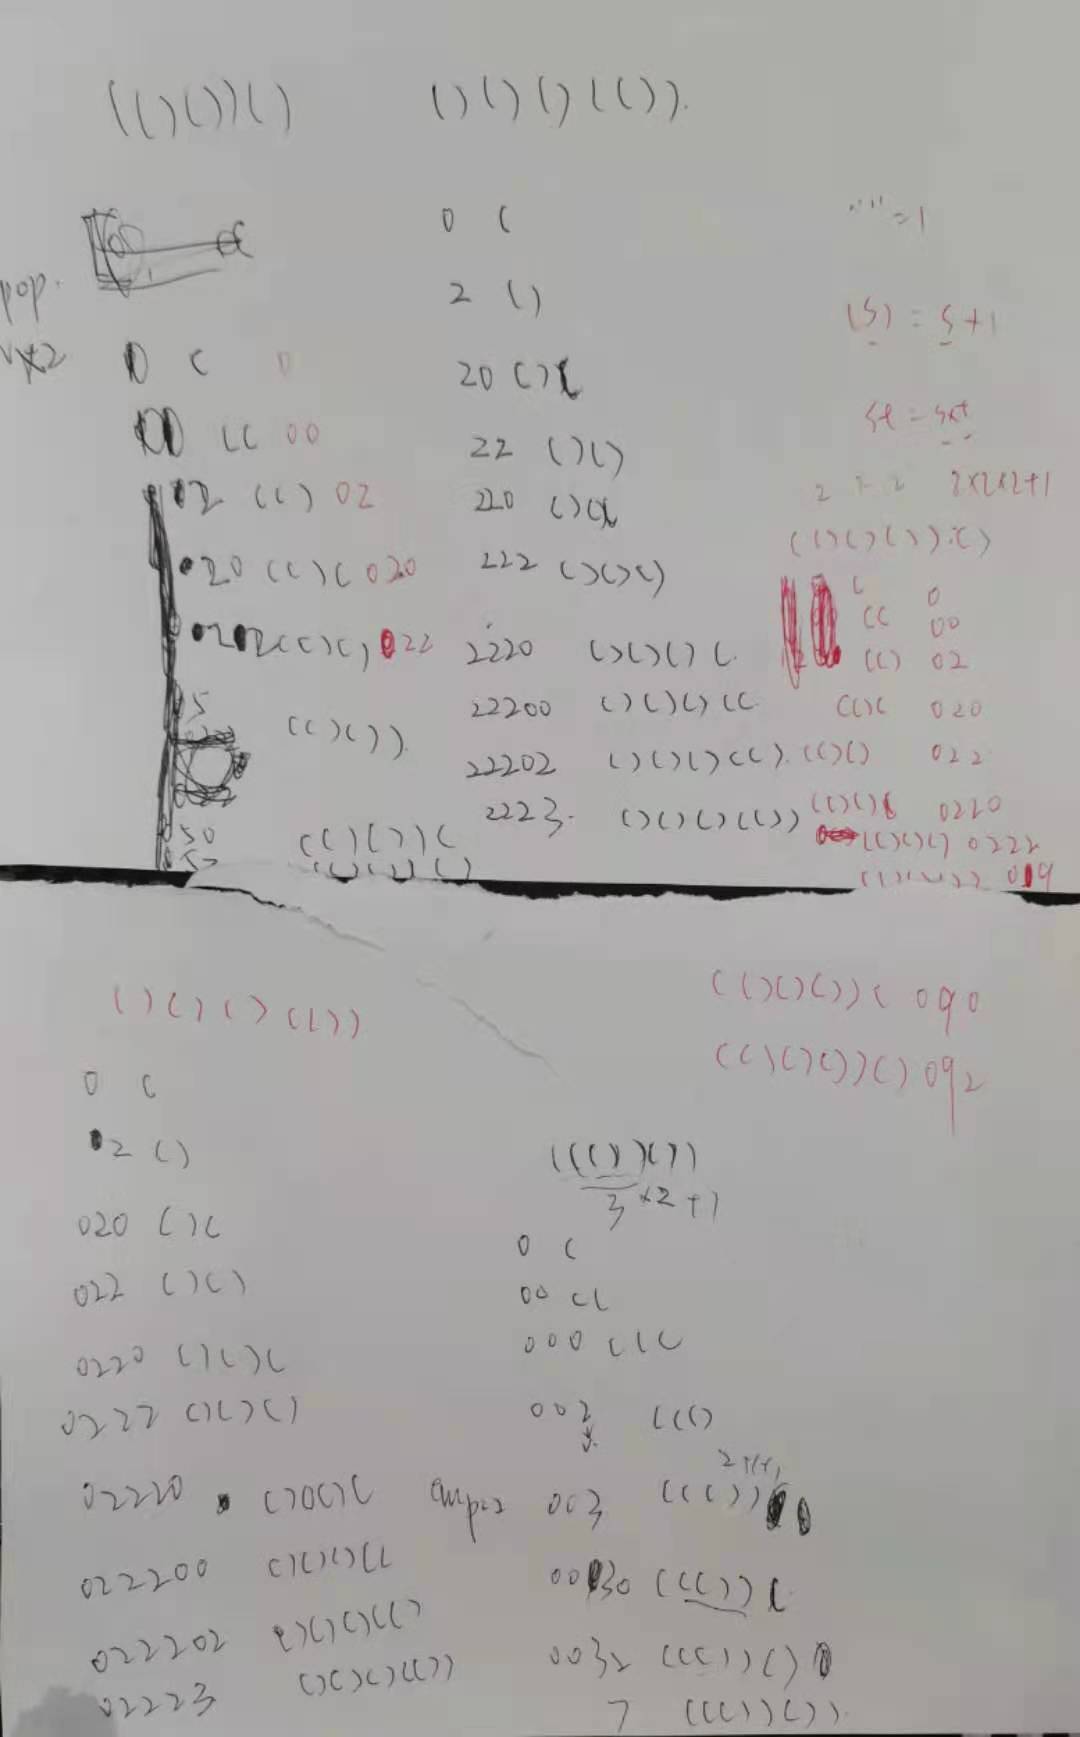 (()())()
()()()(()).
0 (
"" = 1
pop.
2 ()
(S) = S+1
0 ( 0
20 ()(
(( 00
22 ()()
St = S×t
02 (() 02
220 ()((
2×2×2+1
(()()())()
020 (()( 020
222 ()()()
( 0
(( 00
022 (()() 022
2220 ()()()(
(() 02
5 (()())
22200 ()()()((
(()( 020
22202 ()()()(()
(()() 022
2223. ()()()(())
(()()( 0220
50 (()())(
(()()() 0222
52 (()())()
(()()()) 09
()()()(())
(()()())( 090
(()()())() 092
0 (
2 ()
((())())
3×2+1
020 ()(
0 (
022 ()()
00 ((
0220 ()()(
000 (((
0222 ()()()
002 ((()
02220 ()()()(
003 ((())
022200 ()()()((
0030 ((())(
022202 ()()()(()
0032 ((())()
02223 ()()()(())
7 ((())()).